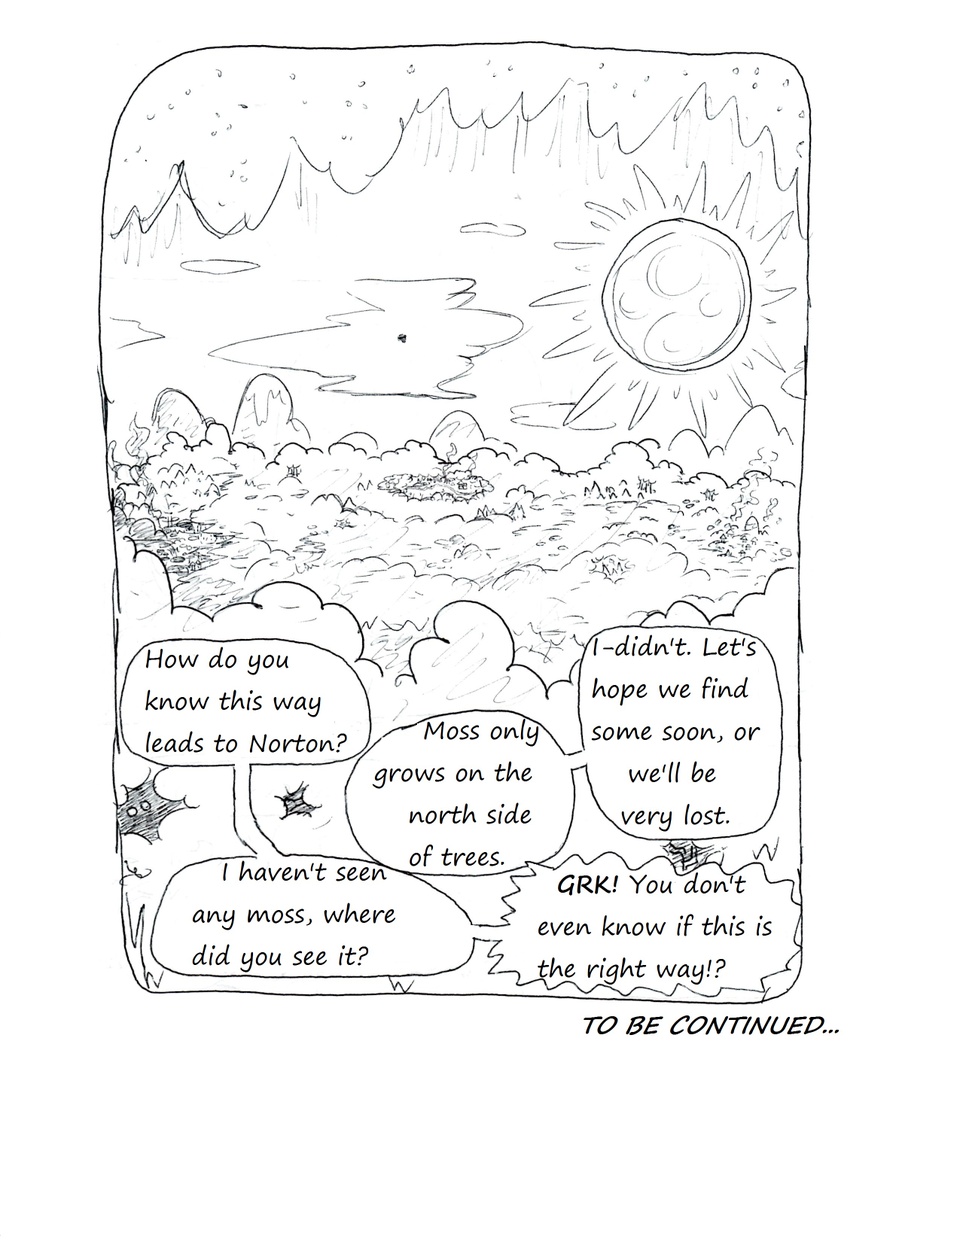 How do you
know this way
leads to Norton?
Moss only
grows on the
north side
of trees.
I haven't seen
any moss, where
did you see it?
I-didn't. Let's
hope we find
some soon, or
we'll be
very lost.
GRK! You don't
even know if this is
the right way!?
TO BE CONTINUED...